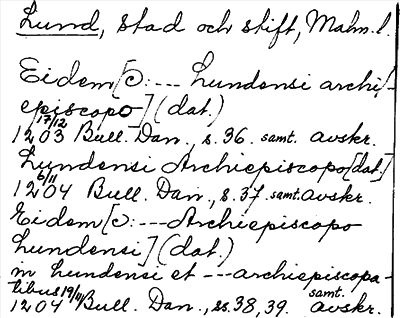 Lund, stad och stift, Malm.l.
Eidem [ɔ: --- Lundensi archi/-
episcopo] (dat.)
1203 17/12 Bull. Dan., s. 36. samt. avskr.
Lundensi Archiepiscopo [dat.]
1204 6/11 Bull. Dan., s. 37. samt. avskr.
Eidem [ɔ: --- Archiepiscopo
Lundensi] (dat.)
in Lundensi et --- archiepiscopa-
tibus 19/11 samt.
1204 Bull. Dan., ss. 38, 39. avskr.